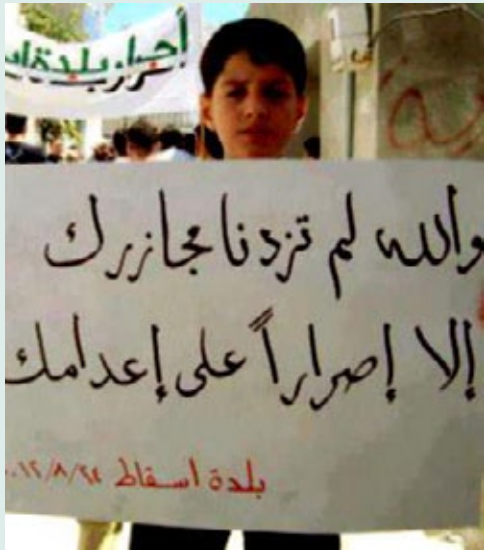 أحرار بلدة
والله لم تزدنا مجازرك
إلا إصراراً على إعدامك
بلدة اسقاط ٢٠١٢/٨/٢٤